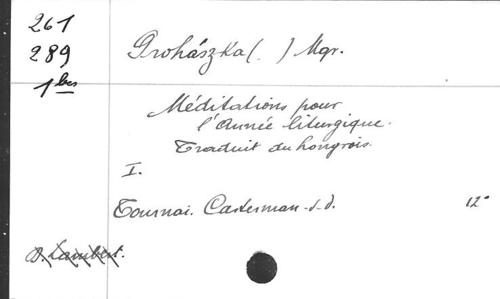 261
289
1 bis
Prohászka ( . ) Mgr.
Méditations pour
l'Année liturgique.
Traduit du hongrois.
I.
Tournai. Casterman. s. d.
12°
D. Lambert.